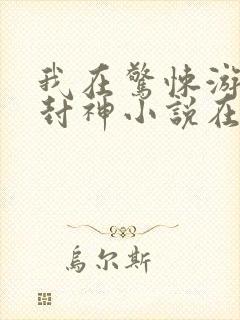 我在驚悚游
封神小說在
烏尔斯